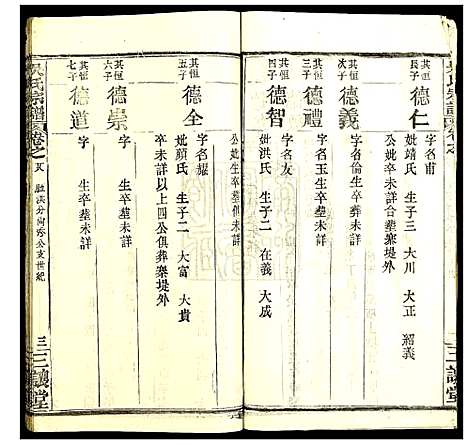 其恒長子
德仁
字名甫
妣靖氏 生子三 大川 大正 紹義
公妣卒未詳合塟寨堤外
其恒次子
德義
字名倫生卒塟未詳
其恒三子
德禮
字名玉生卒塟未詳
其恒四子
德智
字名友
妣洪氏 生子二 在義 大成
公妣生卒塟俱未詳
其恒五子
德全
字名耀
妣顔氏 生子二 大富 大貴
卒未詳以上四公俱葬寨堤外
其恒六子
德崇
字 生卒塟未詳
其恒七子
德道
字 生卒塟未詳
吳氏宗譜 卷之
分尚秀公支世紀
三 三讓堂
三讓堂